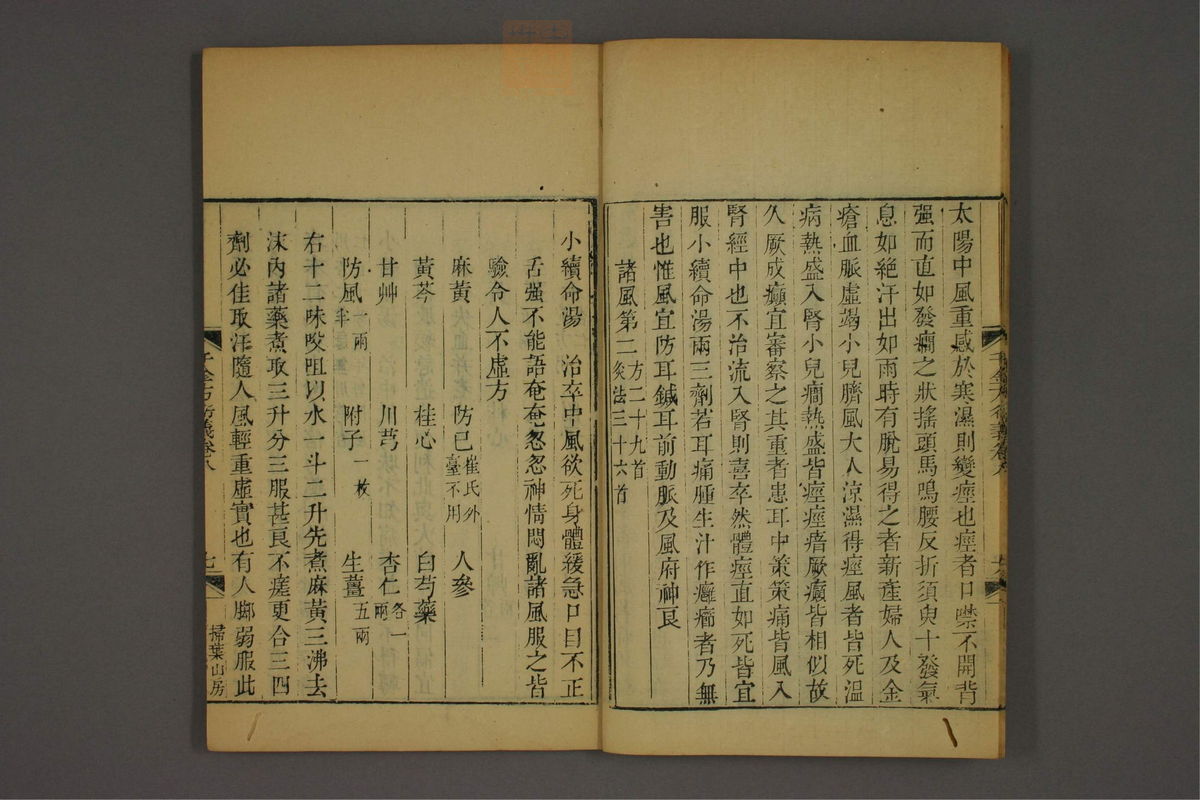 太陽中風重感於寒濕則變痙也痙者口噤不開背
强而直如發癎之狀搖頭馬鳴腰反折須臾十發氣
息如絕汗出如雨時有脫易得之者新產婦人及金
瘡血脈虛竭小兒臍風大人涼濕得痙風者皆死溫
病熱盛入腎小兒癎熱盛皆痙痙瘖厥癲皆相似故
久厥成癲宜審察之其重者患耳中策策痛皆風入
腎經中也不治流入腎則喜卒然體痙直如死皆宜
服小續命湯兩三劑若耳痛腫生汁作癰癤者乃無
害也惟風宜防耳鍼耳前動脈及風府神良
諸風第二 方二十九首 灸法三十六首
小續命湯 治卒中風欲死身體緩急口目不正
舌强不能語奄奄忽忽神情悶亂諸風服之皆
驗令人不虛方
麻黃 防己 崔氏外臺不用 人參
黃芩 桂心 白芍藥
甘艸 川芎 杏仁 各一兩
防風 一兩半 附子 一枚 生薑 五兩
右十二味㕮咀以水一斗二升先煮麻黃三沸去
沫內諸藥煮取三升分三服甚良不瘥更合三四
劑必佳取汗隨人風輕重虛實也有人脚弱服此
千金方衍義卷八
七
掃葉山房